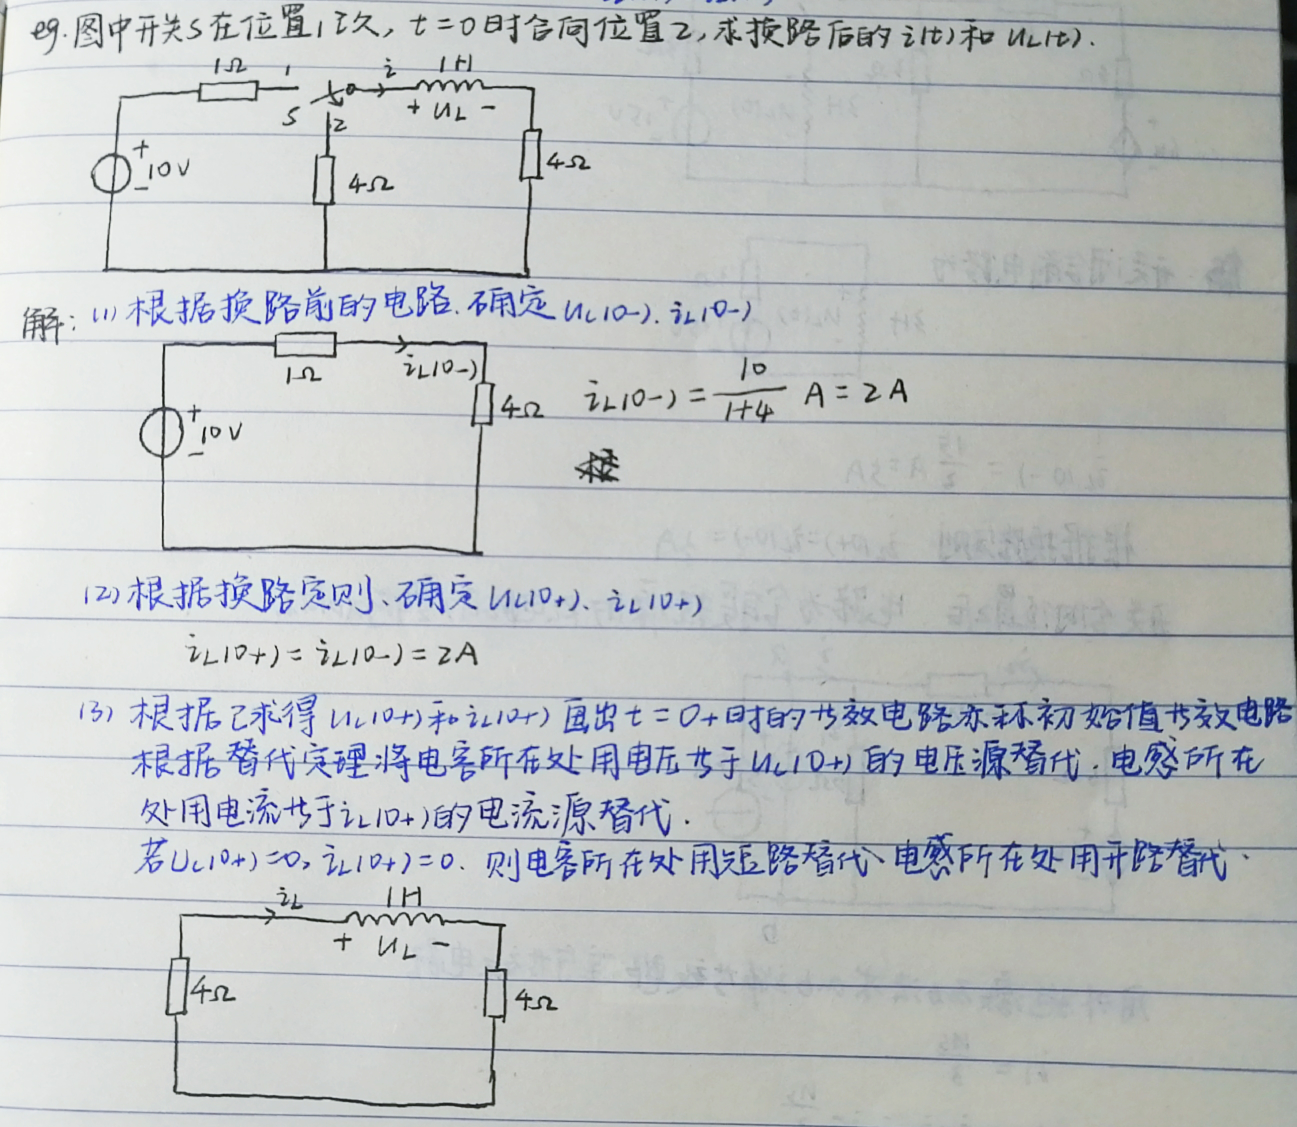 eg.图中开关S在位置1已久, t=0时合向位置2,求换路后的i(t)和uL(t).
1Ω 1 i 1H
S 2 + uL -
+ 10V - 4Ω 4Ω
解: (1) 根据换路前的电路.确定uc(0-).iL(0-)
1Ω iL(0-) 4Ω
+ 10V -
iL(0-) = 10/(1+4) A = 2A
(2) 根据换路定则、确定uc(0+). iL(0+)
iL(0+) = iL(0-) = 2A
(3) 根据已求得uc(0+)和iL(0+)画出t=0+时的等效电路亦称初始值等效电路
根据替代定理将电容所在处用电压等于uc(0+)的电压源替代.电感所在
处用电流等于iL(0+)的电流源替代.
若Uc(0+)=0, iL(0+)=0. 则电容所在处用短路替代、电感所在处用开路替代.
iL 1H
+ uL -
4Ω 4Ω